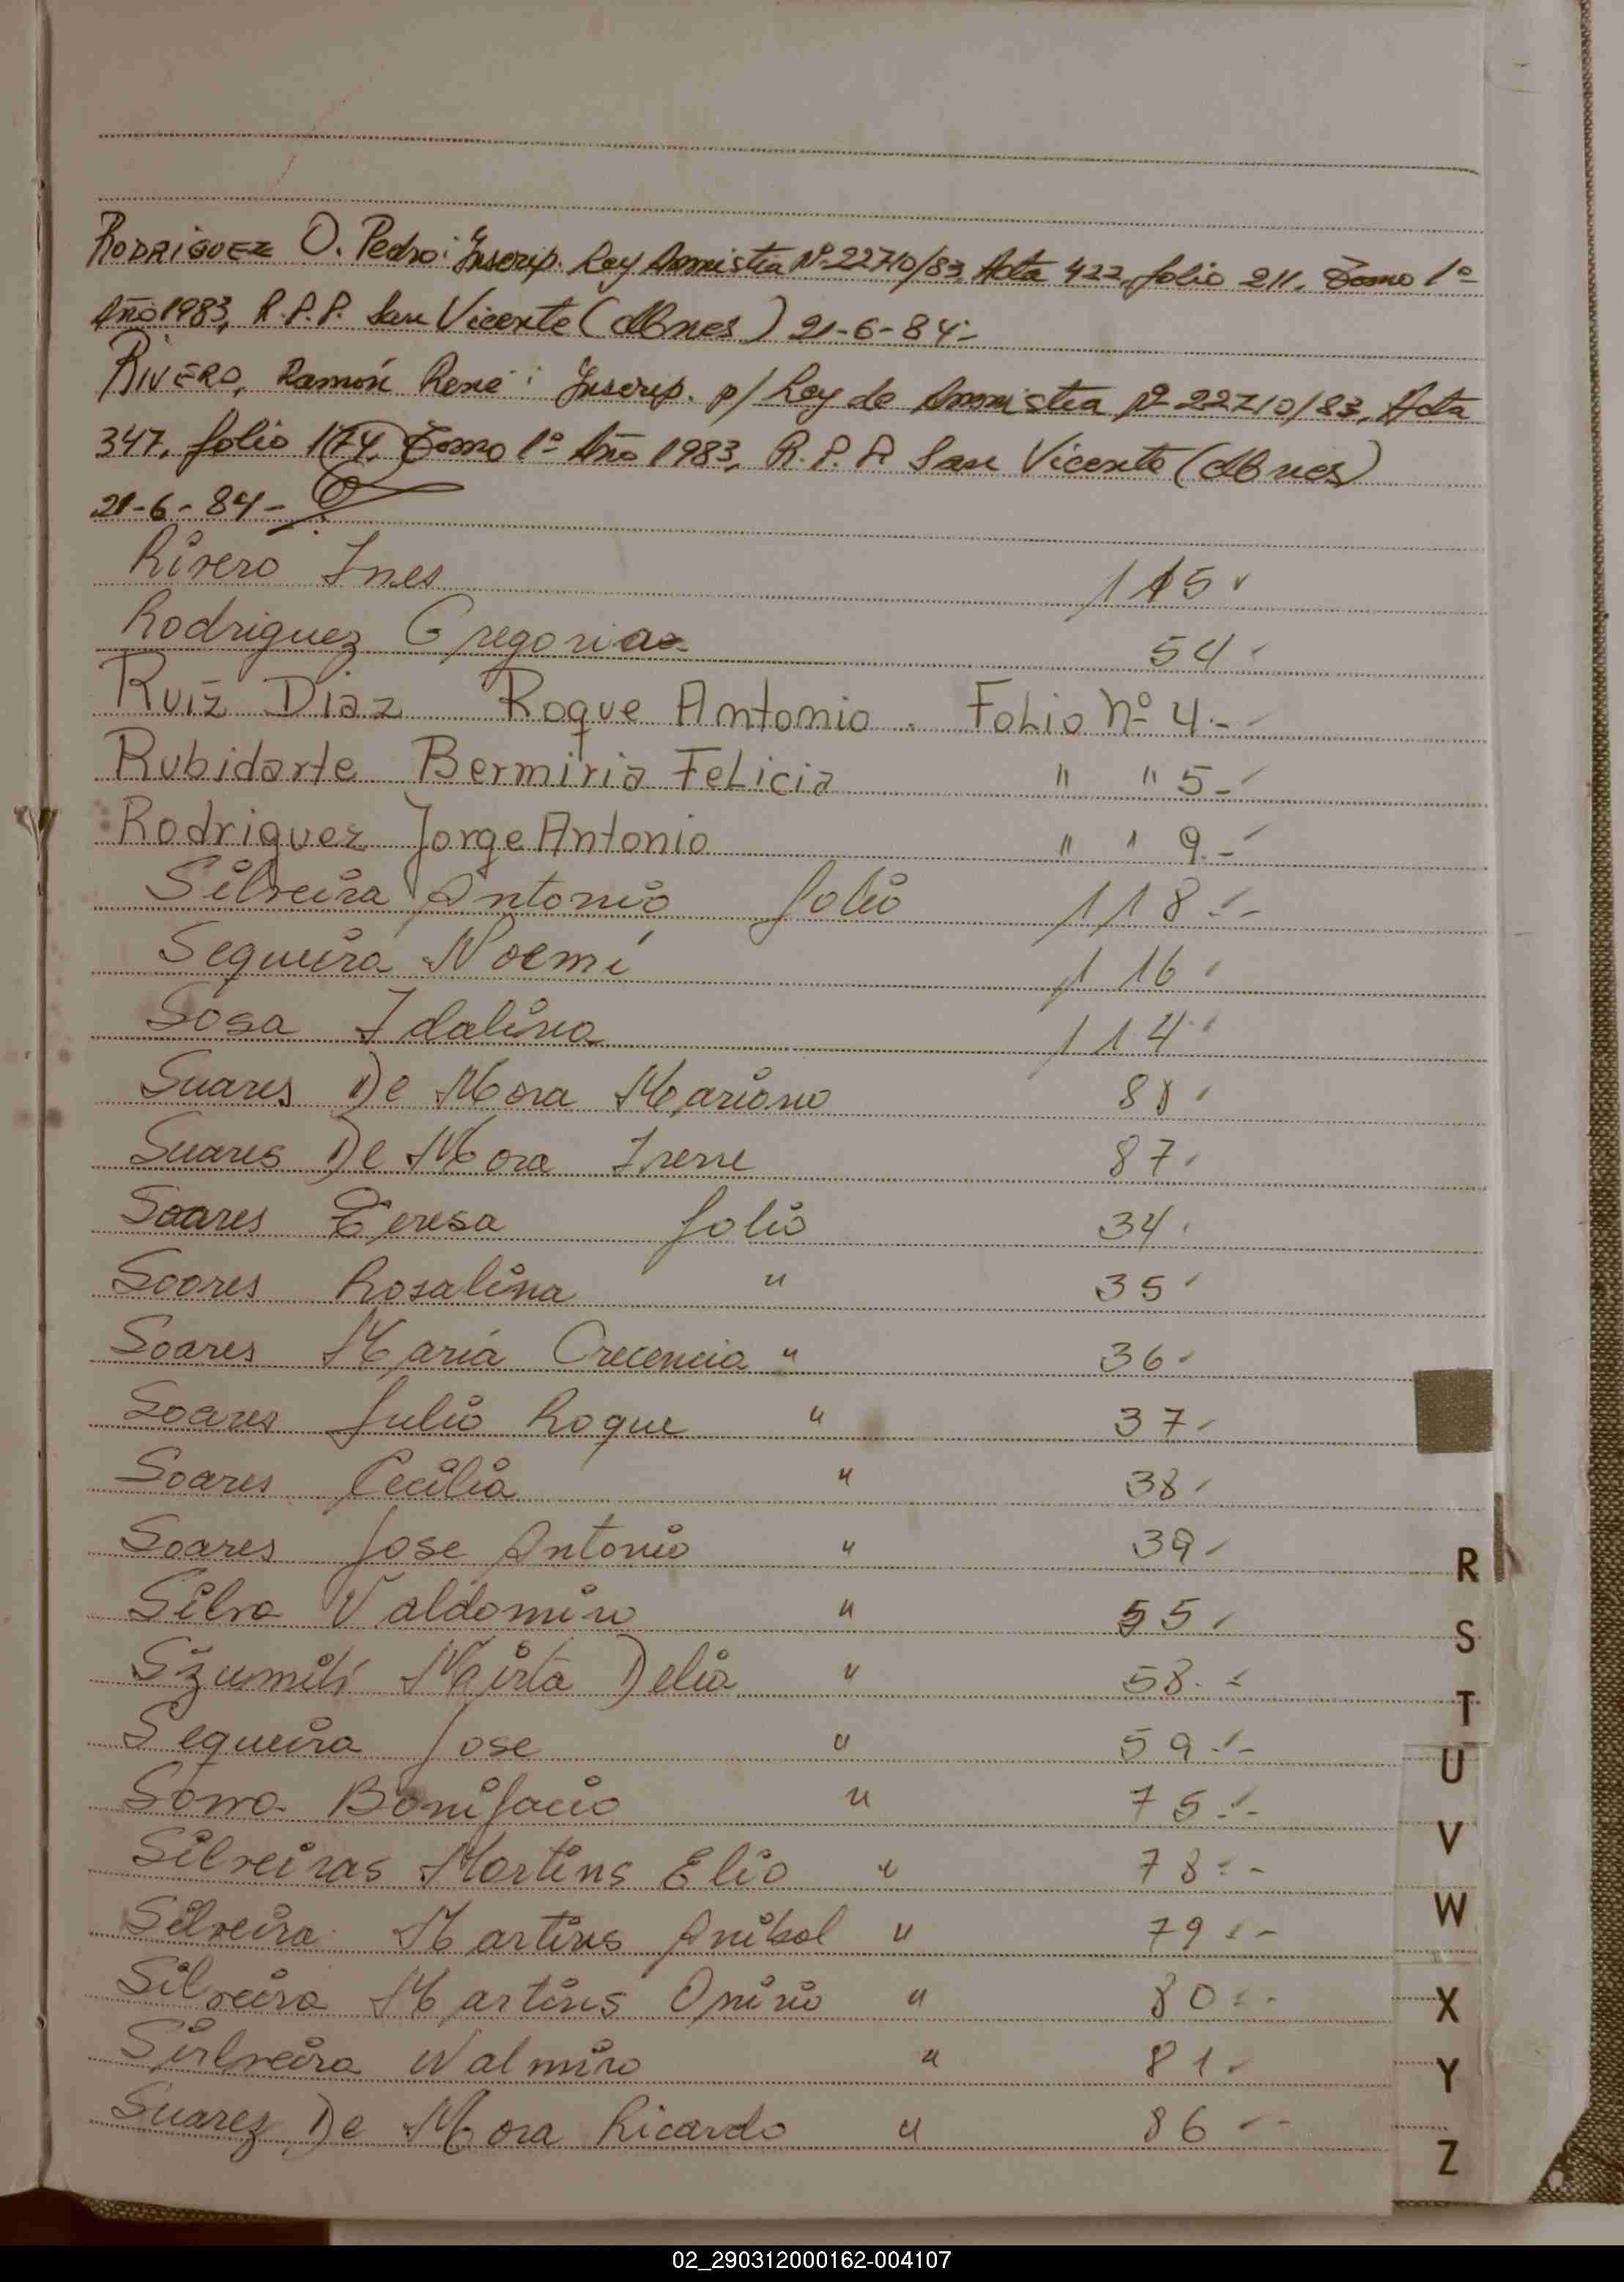 RODRIGUEZ O. Pedro: Inscrip. Ley Amnistia Nº 22710/83, Acta 422, folio 211. Tomo 1º
Año 1983, R.P.P. San Vicente (Mnes) 21-6-84.-
RIVERO, Ramón René: Inscrip. p/ Ley de Amnistia Nº 22710/83, Acta
347, folio 174, Tomo 1º Año 1983, R.P.P. San Vicente (Mnes)
21-6-84-
Rivero Ines 115
Rodriguez Gregoria 54
Ruiz Diaz Roque Antonio. Folio Nº 4.-
Rubidarte Bermiria Felicia " " 5-
Rodriguez Jorge Antonio " " 9.-
Silveira Antonio folio 118.-
Sequeira Noemí 116
Sosa Idalina 114
Suares De Mora Mariano 88
Suares De Mora Irene 87
Soares Teresa folio 34
Soares Rosalina " 35
Soares Maria Crecencia " 36
Soares Julio Roque " 37
Soares Cecilia " 38
Soares Jose Antonio " 39
Silva Valdomiro " 55
Szumili Mirta Delia " 58.-
Sequeira Jose " 59.-
Bonifacio " 75.-
Silveiras Martins Elio " 78.-
Silveira Martins Anibal " 79.-
Silveira Martins " 80.-
Sirlveira Walmiro " 81
Suarez De Mora Ricardo " 86 -
R
S
T
U
V
W
X
Y
Z
02_290312000162-004107